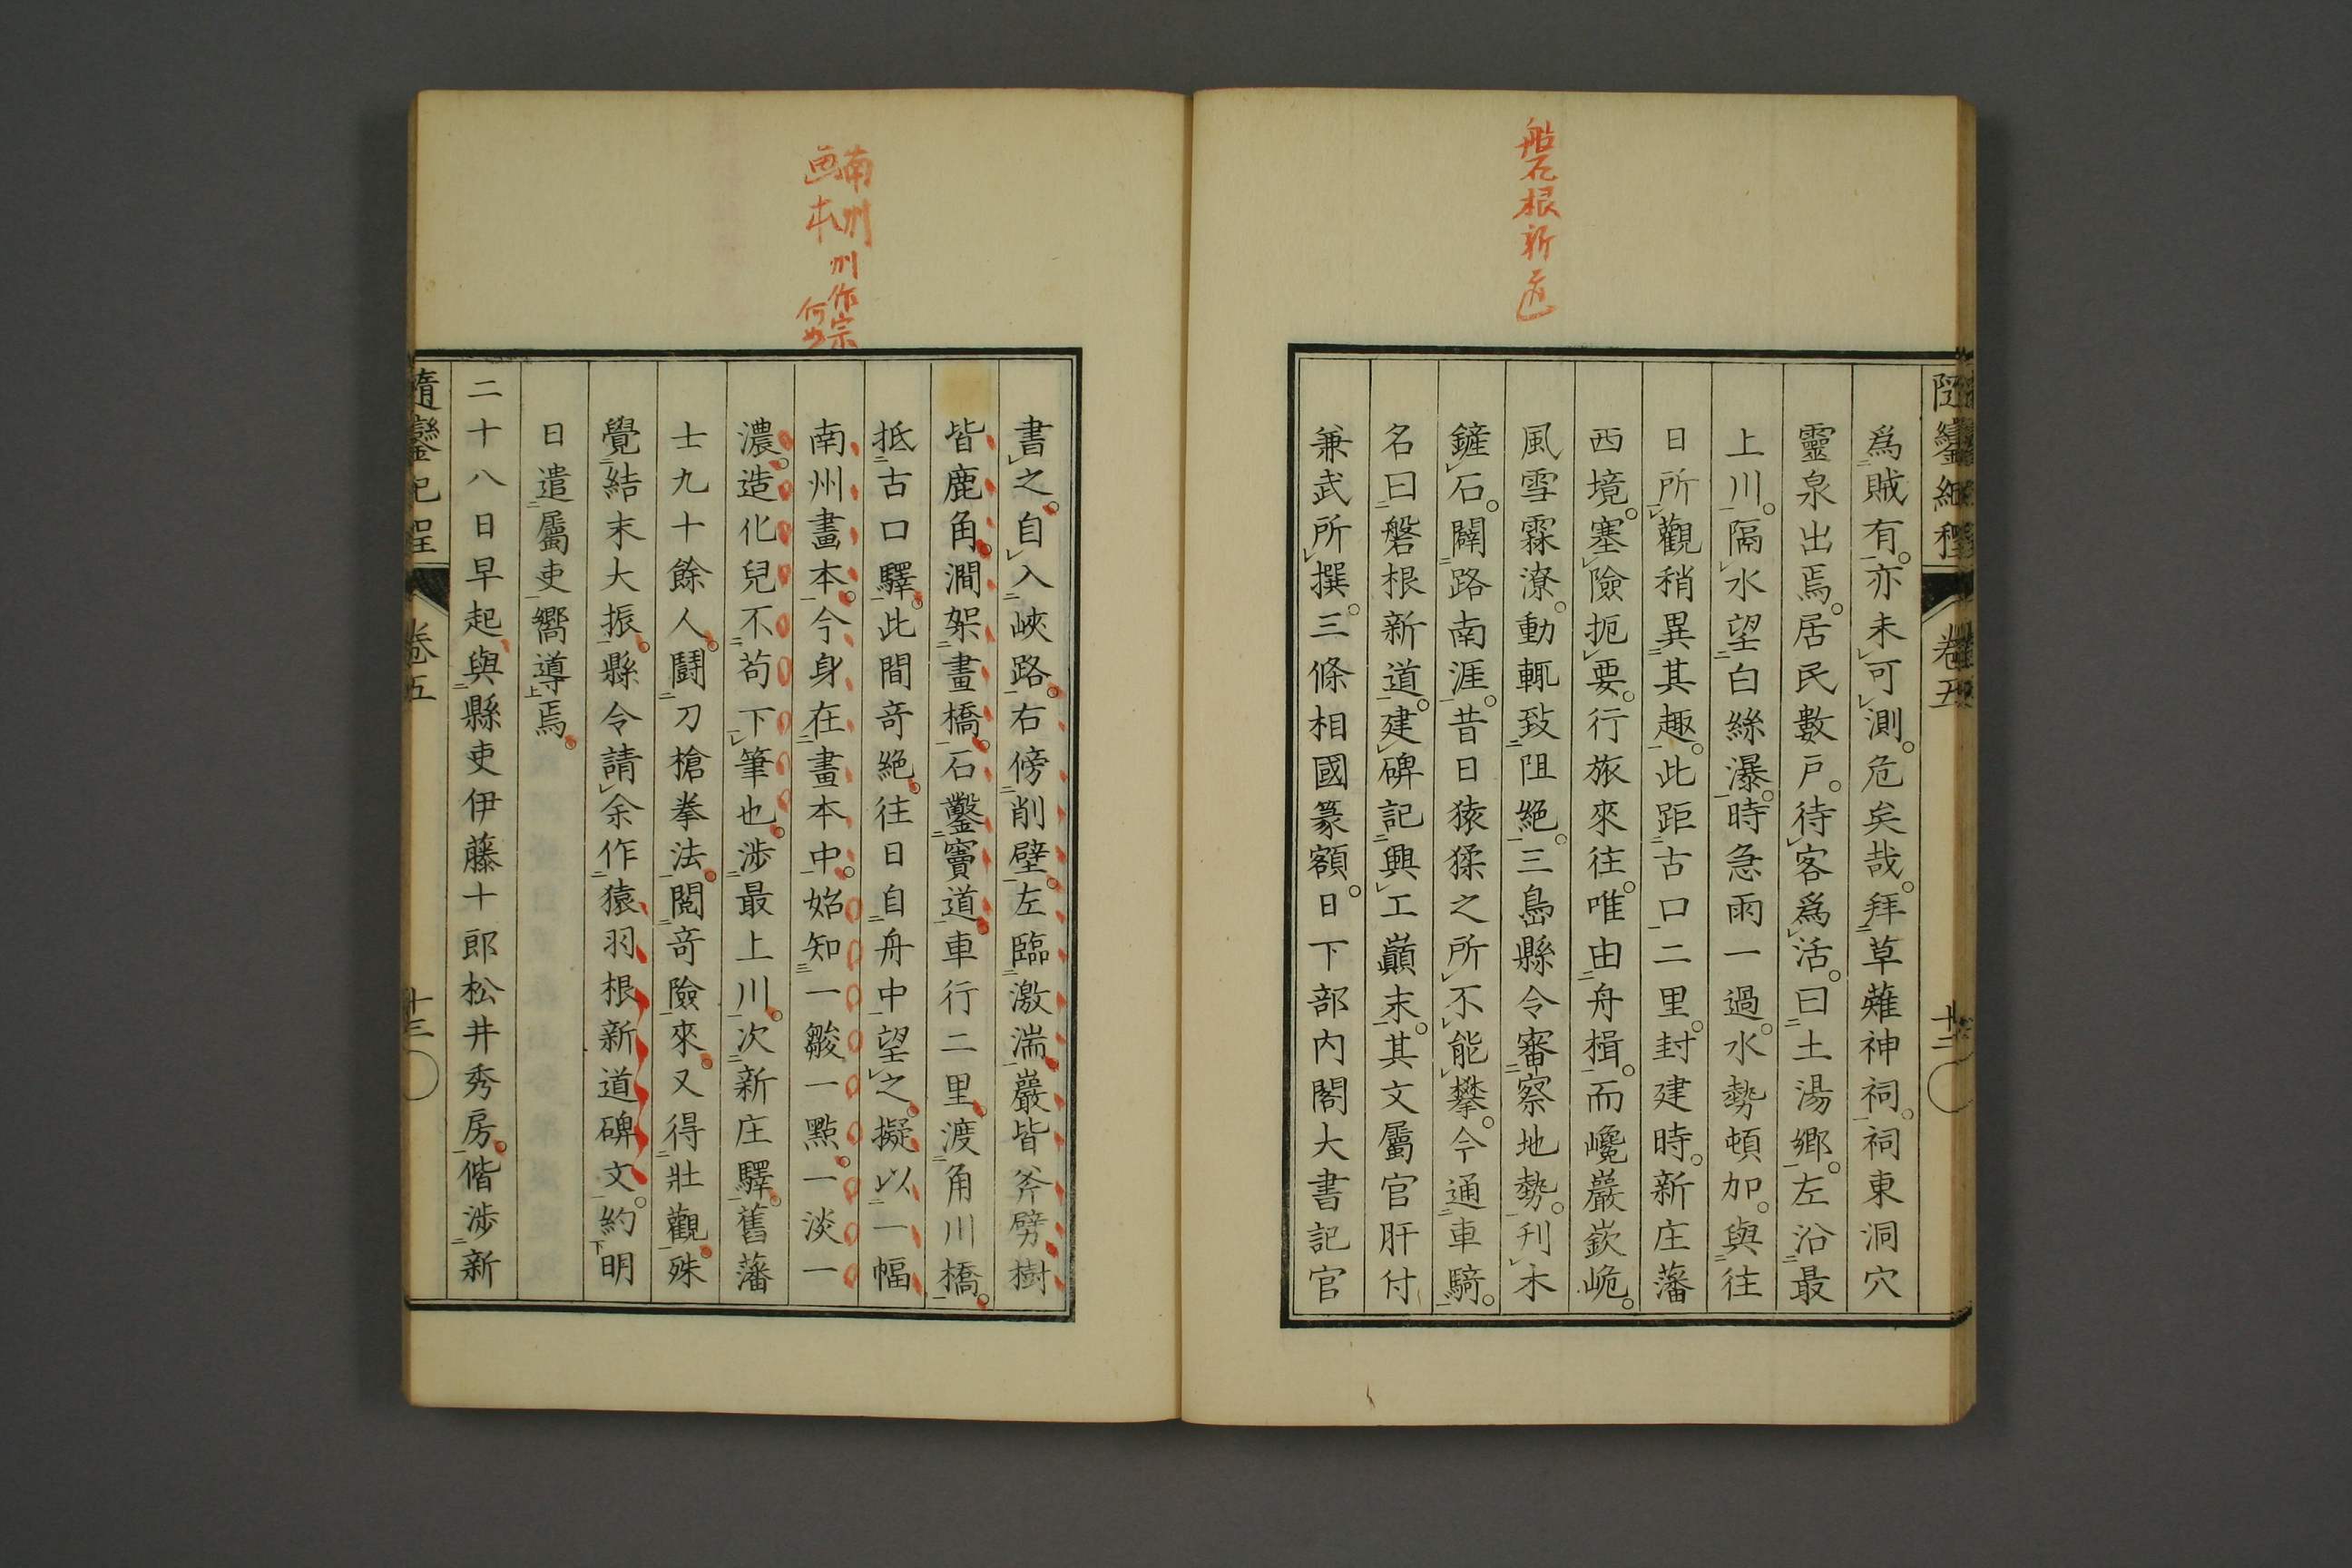 磐根新道
隨鑾紀程
卷五
十二
爲賊有。亦未可測。危矣哉。拜草薙神祠。祠東洞穴
靈泉出焉。居民數戶。待客爲活。曰土湯鄉。左沿最
上川。隔水望白絲瀑。時急雨一過。水勢頓加。與往
日所觀稍異其趣。此距古口二里。封建時。新庄藩
西境。塞險扼要。行旅來往。唯由舟楫。而巉巖嶔峗。
風雪霖潦。動輒致阻絕。三島縣令審察地勢。刊木
鏟石。闢路南涯。昔日猿猱之所不能攀。今通車騎。
名曰磐根新道。建碑記興工巔末。其文屬官肝付
兼武所撰。三條相國篆額。日下部內閣大書記官
南州
畫本
州作宗
何如
書之。自入峽路。右傍削壁。左臨激湍。巖皆斧劈樹
皆鹿角。澗架畫橋。石鑿竇道。車行二里。渡角川橋。
抵古口驛。此間奇絕。往日自舟中望之。擬以一幅
南州畫本。今身在畫本中。始知一皴一點。一淡一
濃。造化兒不苟下筆也。涉最上川。次新庄驛。舊藩
士九十餘人。鬪刀槍拳法。閱奇險來。又得壯觀。殊
覺結末大振。縣令請余作猿羽根新道碑文。約明
日遣屬吏嚮導焉。
二十八日早起。與縣吏伊藤十郎松井秀房。偕涉新
隨鑾紀程
卷五
十三